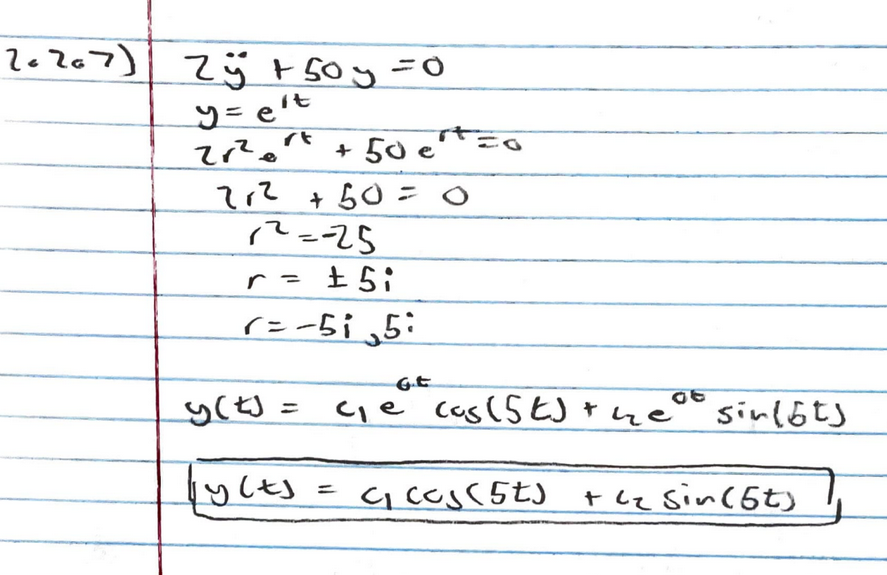 2.2.7) 2ÿ + 50y = 0
y = e^rt
2r² e^rt + 50 e^rt = 0
2r² + 50 = 0
r² = -25
r = ± 5i
r = -5i, 5i
y(t) = c₁ e^0t cos(5t) + c₂ e^0t sin(5t)
y(t) = c₁ cos(5t) + c₂ sin(5t)